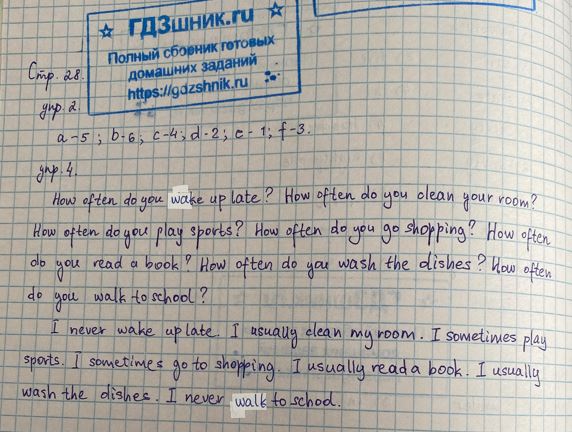 ГДЗшник.ru
Полный сборник готовых
домашних заданий
https://gdzshnik.ru
Стр. 28.
упр. 2.
a-5; b-6; c-4; d-2; e-1; f-3.
упр. 4.
How often do you wake up late? How often do you clean your room?
How often do you play sports? How often do you go shopping? How often
do you read a book? How often do you wash the dishes? How often
do you walk to school?
I never wake up late. I usually clean my room. I sometimes play
sports. I sometimes go to shopping. I usually read a book. I usually
wash the dishes. I never walk to school.